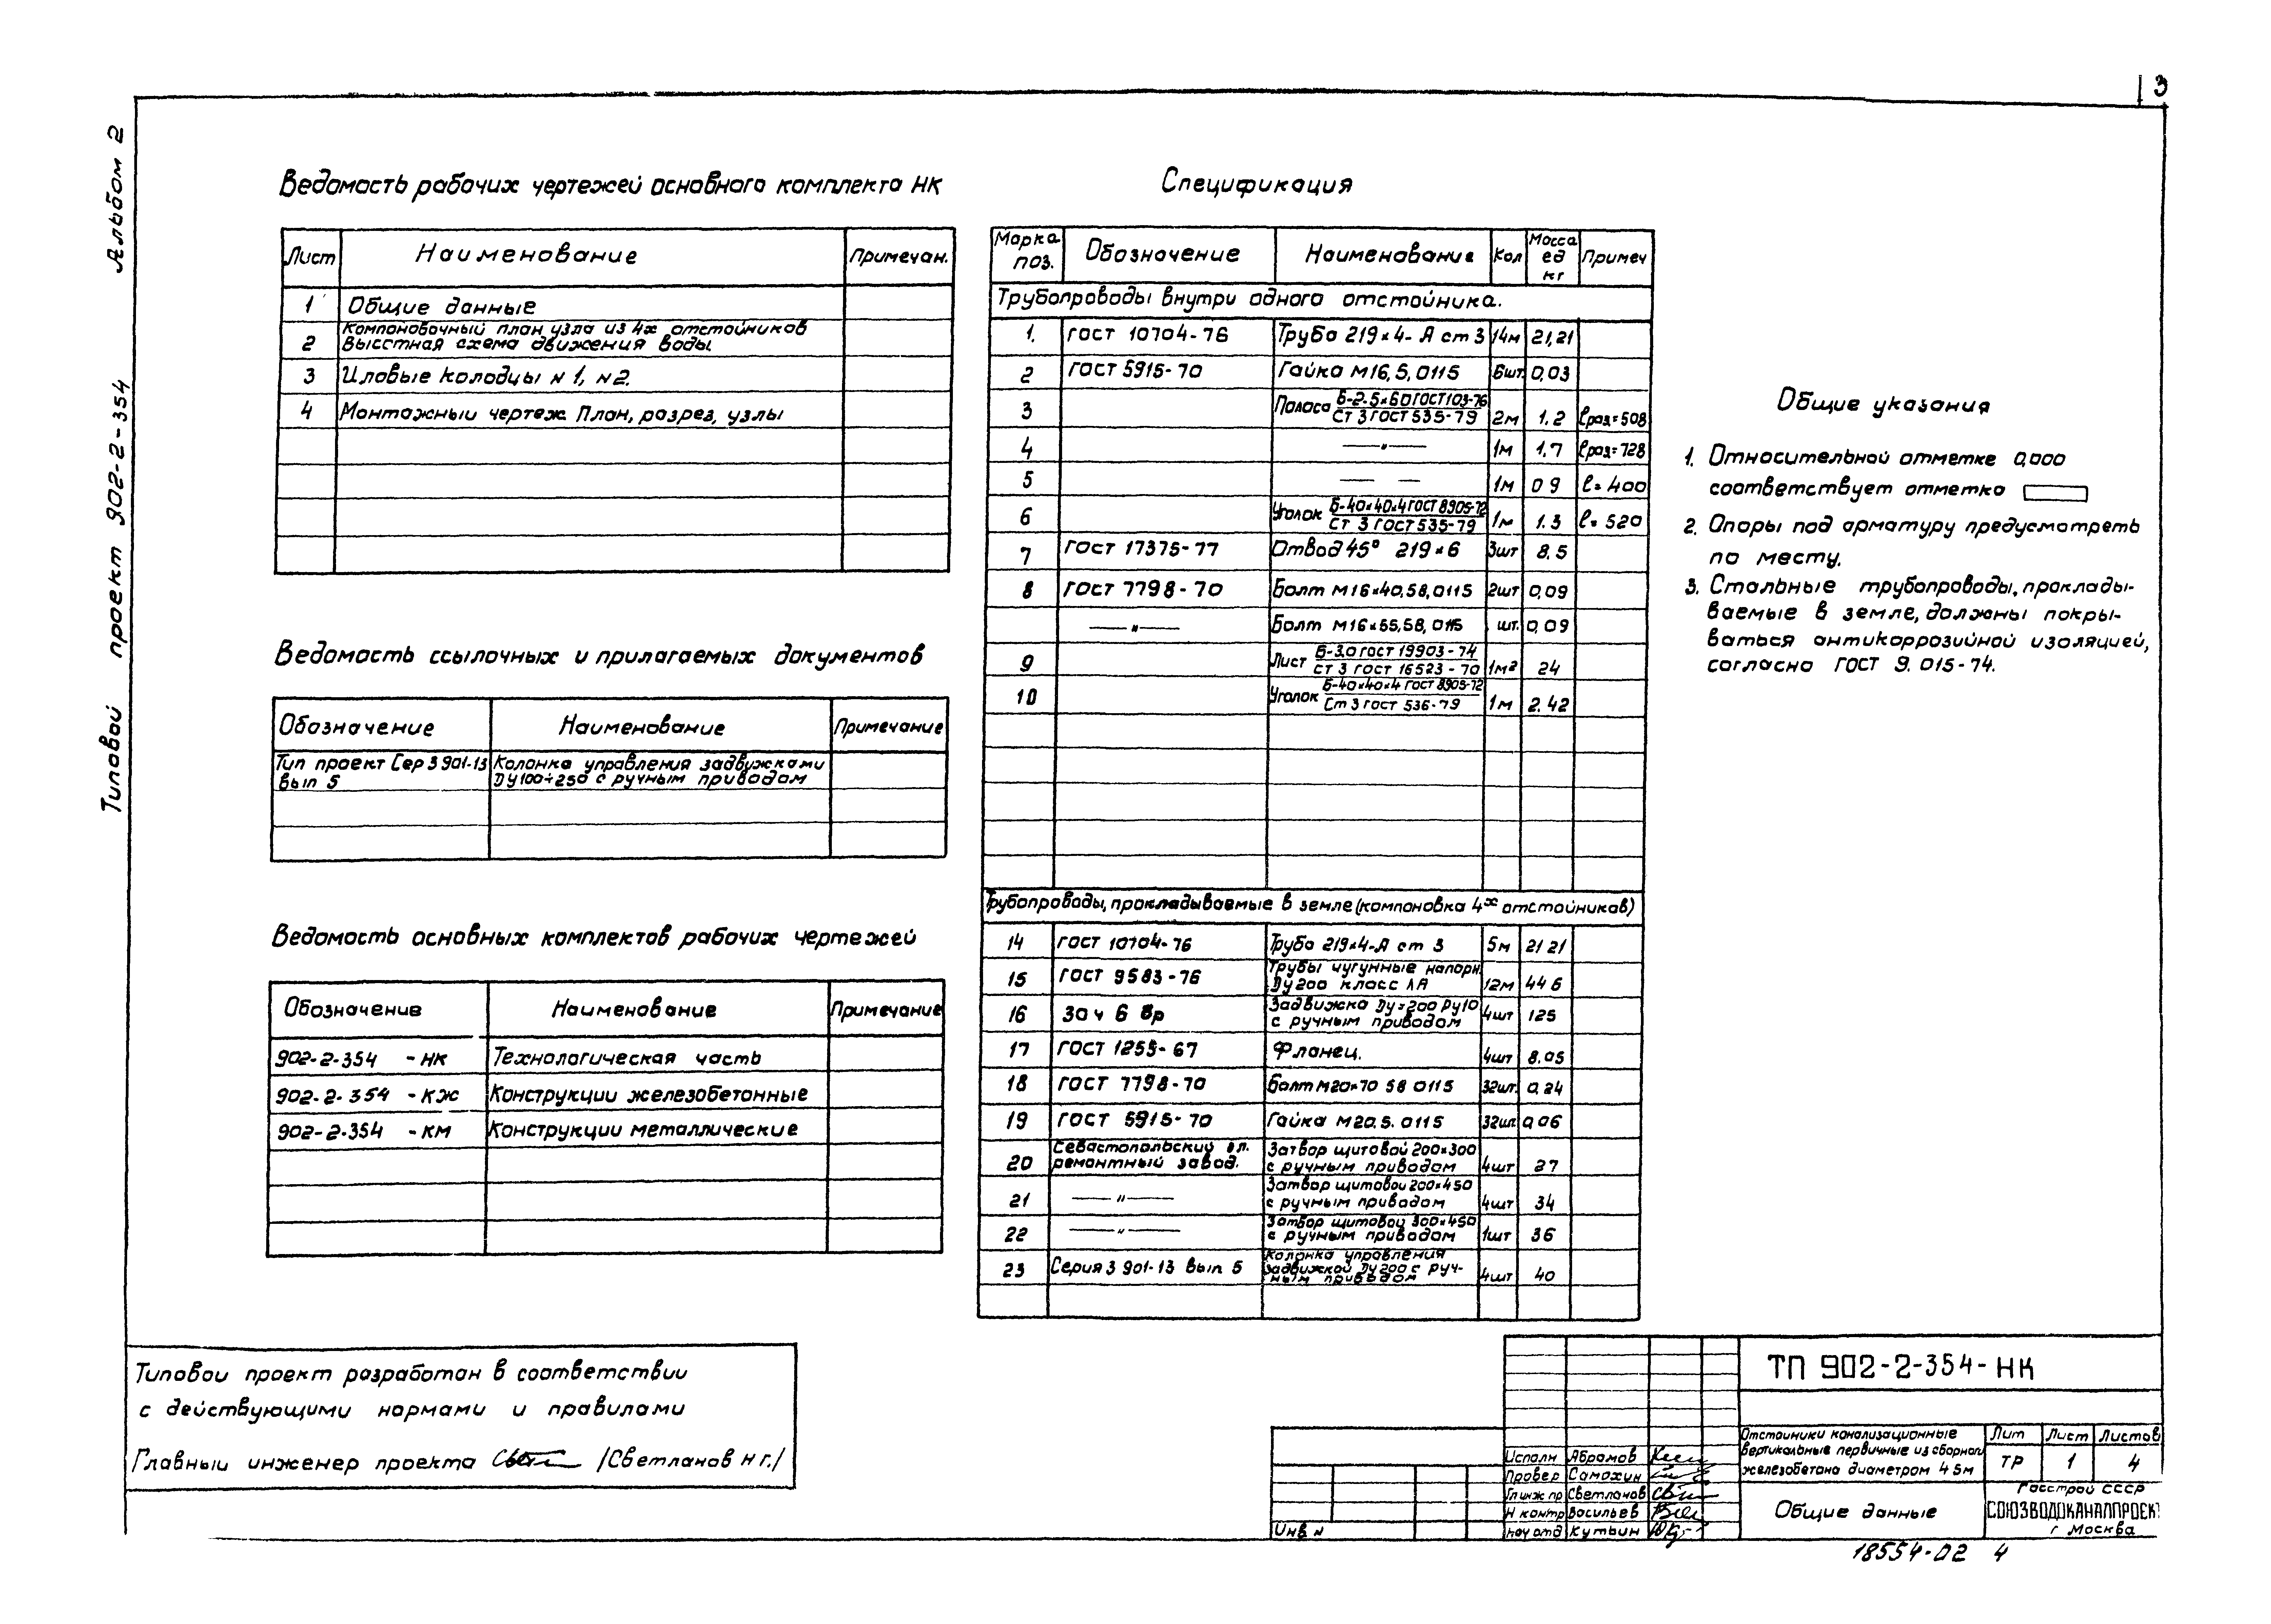 3
Альбом 2
Типовой проект 902-2-354
Ведомость рабочих чертежей основного комплекта НК
Лист Наименование Примечан.
1 Общие данные
2 Компоновочный план узла из 4х отстойников
Высотная схема движения воды
3 Иловые колодцы N 1, N 2.
4 Монтажный чертеж План, разрез, узлы
Ведомость ссылочных и прилагаемых документов
Обозначение Наименование Примечание
Тип проект Сер 3 901-13 Колонка управления задвижками
вып 5 Ду100÷250 с ручным приводом
Ведомость основных комплектов рабочих чертежей
Обозначение Наименование Примечание
902-2-354 - НК Технологическая часть
902-2-354 - КЖ Конструкции железобетонные
902-2-354 - КМ Конструкции металлические
Спецификация
Марка поз. Обозначение Наименование Кол Масса ед кг Примеч
Трубопроводы внутри одного отстойника.
1. ГОСТ 10704-76 Труба 219×4-А ст 3 14м 21,21
2 ГОСТ 5915-70 Гайка М16,5,0115 6шт. 0,03
3 Полоса Б-2.5×60 ГОСТ 103-76
Ст 3 ГОСТ 535-79 2м 1.2 ℓраз=508
4 —〃— 1м 1.7 ℓраз=728
5 — — 1м 0 9 ℓ=400
6 Уголок Б-40×40×4 ГОСТ 8905-72
Ст 3 ГОСТ 535-79 1м 1.3 ℓ=520
7 ГОСТ 17375-77 Отвод 45° 219×6 3шт 8.5
8 ГОСТ 7798-70 Болт М16×40,58,0115 2шт 0,09
—〃— Болт М16×55,58,0115 шт. 0,09
9 Лист Б-3.0 ГОСТ 19903-74
Ст 3 ГОСТ 16523-70 1м² 24
10 Уголок Б-40×40×4 ГОСТ 8905-72
Ст 3 ГОСТ 536-79 1м 2.42
Трубопроводы, прокладываемые в земле (компоновка 4х отстойников)
14 ГОСТ 10704-76 Труба 219×4-А ст 3 5м 21 21
15 ГОСТ 9583-76 Трубы чугунные напорн.
Ду200 класс ЛА 12м 44 6
16 30 ч 6 бр Задвижка Ду=200 Ру10
с ручным приводом 4шт 125
17 ГОСТ 1255-67 Фланец. 4шт 8.05
18 ГОСТ 7798-70 Болт М20×70 58 0115 32шт. 0,24
19 ГОСТ 5915-70 Гайка М20.5.0115 32шт 0 06
20 Севастопольский эл. ремонтный завод. Затвор щитовой 200×300
с ручным приводом 4шт 27
21 —〃— Затвор щитовой 200×450
с ручным приводом 4шт 34
22 —〃— Затвор щитовой 300×450
с ручным приводом 1шт 36
23 Серия 3 901-13 вып 5 Колонка управления
задвижкой Ду200 с руч-
ным приводом 4шт 40
Общие указания
1. Относительной отметке 0,000
соответствует отметка
2. Опоры под арматуру предусмотреть
по месту.
3. Стальные трубопроводы, прклады-
ваемые в земле, должны покры-
ваться антикоррозийной изоляцией,
согласно ГОСТ 9.015-74.
Типовой проект разработан в соответствии
с действующими нормами и правилами
Главный инженер проекта /Светланов Н г./
ТП 902-2-354-НК
Отстойники канализационные
вертикальные первичные из сборного
железобетона диаметром 4 5м
Лит Лист Листов
ТР 1 4
Исполн Абрамов
Провер Самохин
Гл инж пр Светланов
Н контр Васильев
нач отд Кутьин
Инв N
Общие данные
Госстрой СССР
СОЮЗВОДОКАНАЛПРОЕКТ
г Москва
18554-02 4